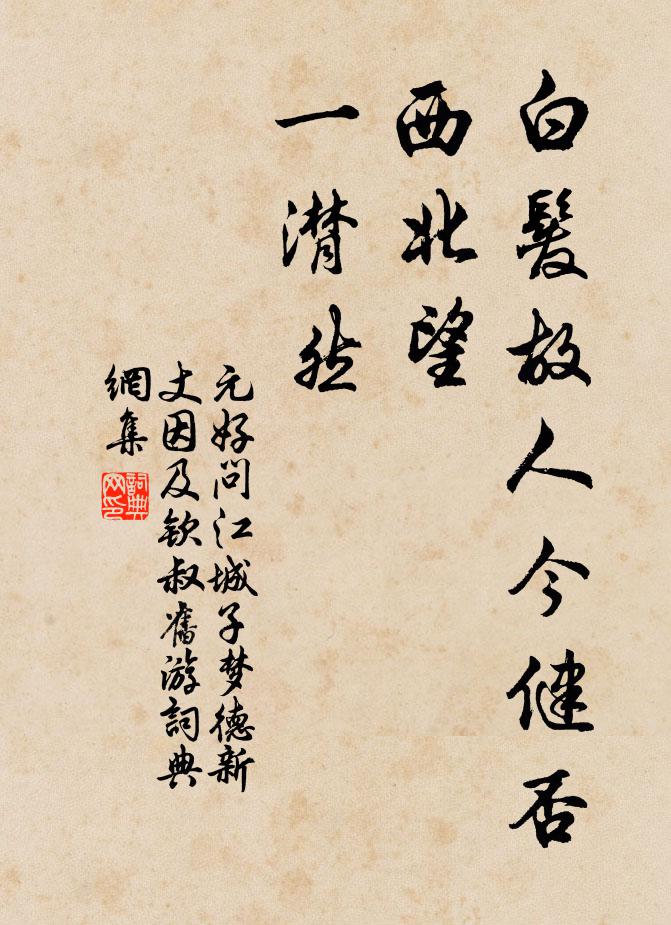 白髮故人今健否
西北望
一潸然
元好問江城子梦德新
丈因及欽叔舊游詞典
網集
詞典网印